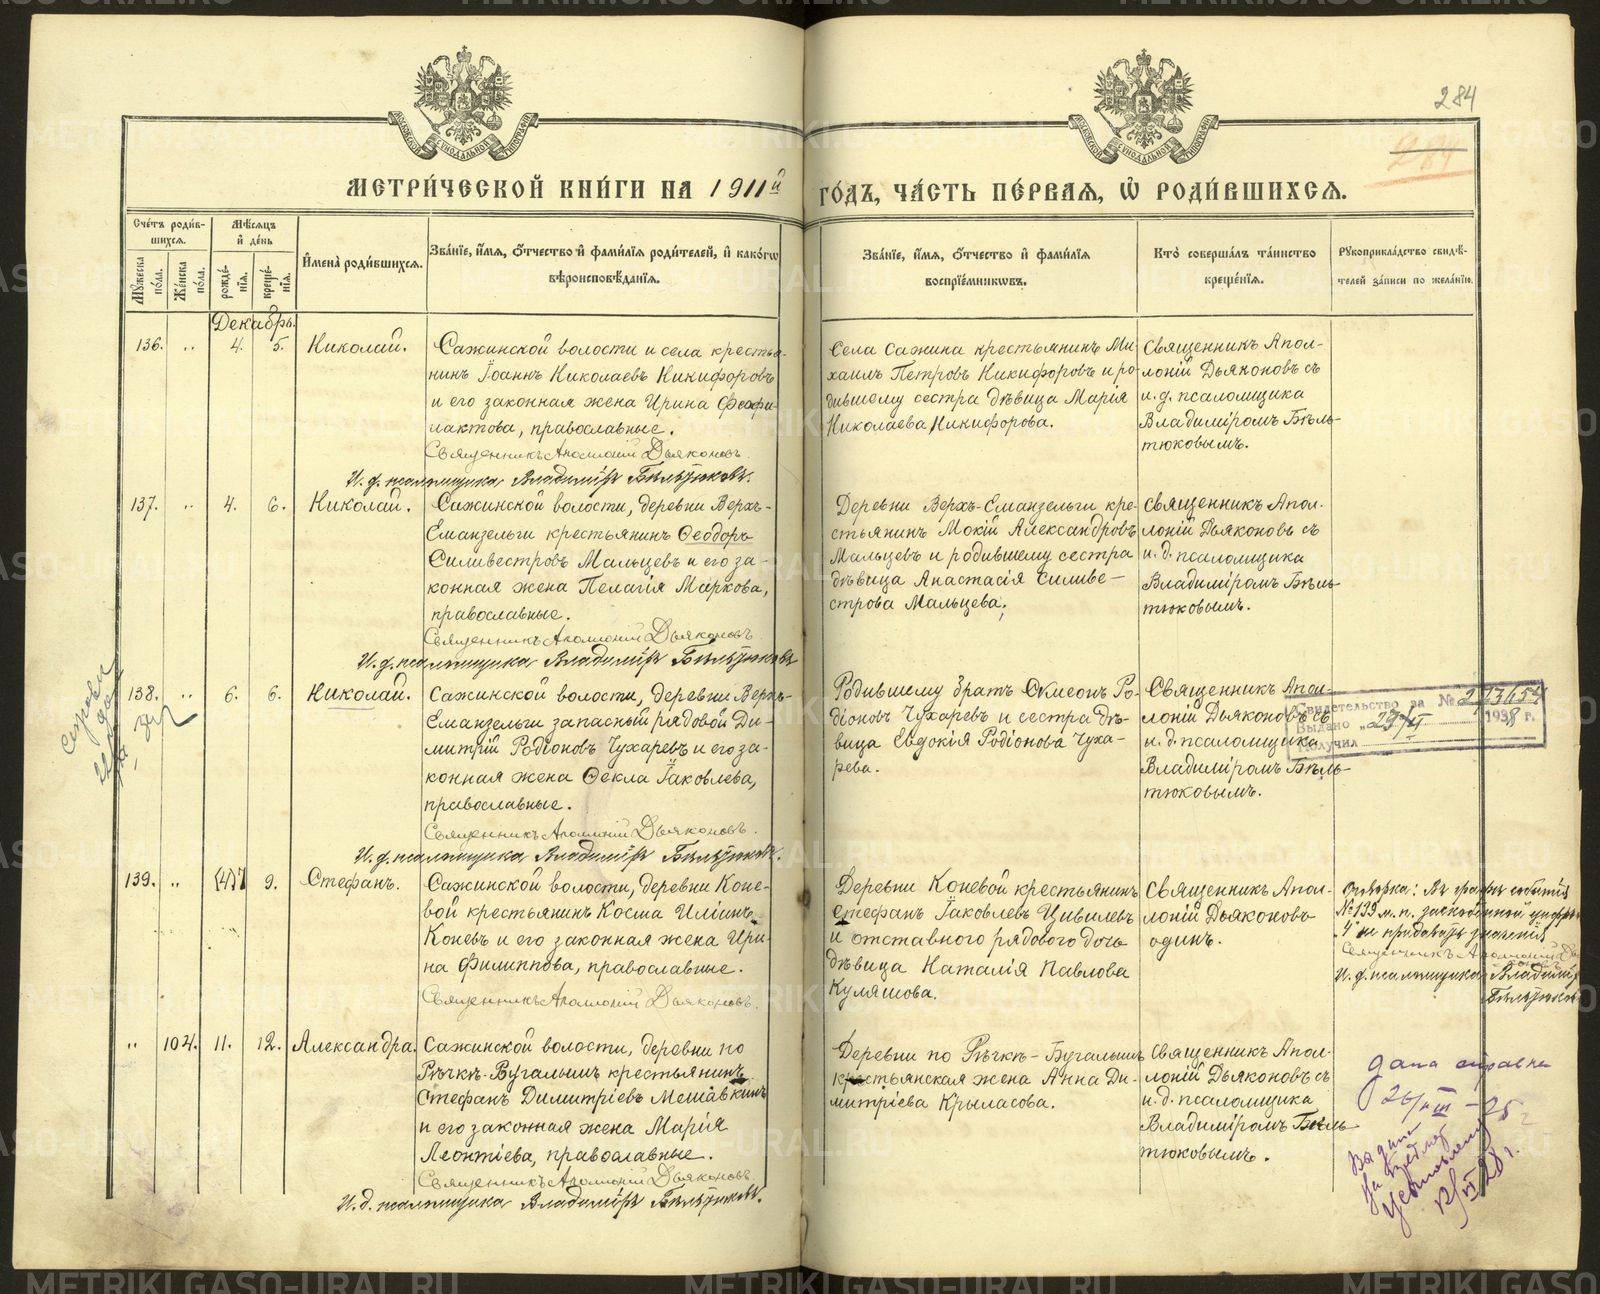 284
284
МОСКОВСКОЙ СѴНОДАЛЬНОЙ ТИПОГРАФІИ
МОСКОВСКОЙ СѴНОДАЛЬНОЙ ТИПОГРАФІИ
МЕТРИ́ЧЕСКОЙ КНИ́ГИ НА 1911й ГО́ДЪ, ЧА́СТЬ ПЕ́РВАЯ, Ѡ҆ РОДИ́ВШИХСЯ.
Сче́тъ роди́в-
шихся.
Мѣ́сяцъ
и҆ де́нь
Мꙋ́жеска по́ла.
Же́нска по́ла.
рожде́нїя.
креще́нїя.
И҆мена̀ роди́вшихся.
Зва́нїе, и҆́мя, ѻ҆́тчество и҆ фами́лїя роди́телей, и҆ како́гѡ
вѣроисповѣ́данїя.
Зва́нїе, и҆́мя, ѻ҆́тчество и҆ фами́лїя
воспрїе́мникѡвъ.
Кто̀ соверша́лъ та́инство
креще́нїя.
Рꙋкоприкла́дство свидѣ́-
телей за́писи по жела́нїю.
Декабрь.
136. „ 4. 5. Николай.
Сажинской волости и села крестья-
нинъ Іоаннъ Николаевъ Никифоровъ
и его законная жена Ирина Феофи-
лактова, православные.
Священникъ Аполлоній Дьяконовъ.
И. д. псаломщика Владиміръ Бѣльтюковъ.
Села Сажина крестьянинъ Ми-
хаилъ Петровъ Никифоровъ и ро-
дившему сестра дѣвица Марія
Николаева Никифорова.
Священникъ Апол-
лоній Дьяконовъ съ
и. д. псаломщика
Владиміромъ Бѣль-
тюковымъ.
137. „ 4. 6. Николай.
Сажинской волости, деревни Верхъ-
Еманзельги крестьянинъ Ѳеодоръ
Силивестровъ Мальцевъ и его за-
конная жена Пелагія Маркова,
православные.
Священникъ Аполлоній Дьяконовъ
И. д. псаломщика Владиміръ Бѣльтюковъ
Деревни Верхъ-Еманзельги кре-
стьянинъ Мокій Александровъ
Мальцевъ и родившему сестра
дѣвица Анастасія Силиве-
строва Мальцева.
Священникъ Апол-
лоній Дьяконовъ съ
и. д. псаломщика
Владиміромъ Бѣль-
тюковымъ.
138. „ 6. 6. Николай.
Сажинской волости, деревни Верхъ-
Еманзельги запасный рядовой Ди-
митрій Родіоновъ Чухаревъ и его за-
конная жена Ѳекла Іаковлева,
православные.
Священникъ Аполлоній Дьяконовъ.
И. д. псаломщика Владиміръ Бѣльтюковъ.
Родившему братъ Симеонъ Ро-
діоновъ Чухаревъ и сестра дѣ-
вица Евдокія Родіонова Чуха-
рева.
Священникъ Апол-
лоній Дьяконовъ съ
и. д. псаломщика
Владиміромъ Бѣль-
тюковымъ.
Свидетельство за №
Выдано „ 1938 г.
Получил
139. „ (4)7 9. Стефанъ.
Сажинской волости, деревни Коне-
вой крестьянинъ Косма Иліинъ
Коневъ и его законная жена Ири-
на Филиппова, православные.
Священникъ Аполлоній Дьяконовъ.
Деревни Коневой крестьянинъ
Стефанъ Іаковлевъ Цивилевъ
и отставного рядового дочь
дѣвица Наталія Павлова
Куляшова.
Священникъ Апол-
лоній Дьяконовъ
одинъ.
Оговорка: Въ графѣ событія
№ 139 м. п. заскобленной цифрѣ
4 не придавать значенія
Священникъ Аполлоній Дьяконовъ
И. д. псаломщика Владиміръ
Бѣльтюковъ
„ 104. 11. 12. Александра.
Сажинской волости, деревни по
Рѣчкѣ-Бугалышъ крестьянинъ
Стефанъ Димитріевъ Мешавкинъ
и его законная жена Марія
Леонтіева, православные.
Священникъ Аполлоній Дьяконовъ.
И. д. псаломщика Владиміръ Бѣльтюковъ.
Деревни по Рѣчкѣ-Бугалышъ
крестьянская жена Анна Ди-
митріева Крыласова.
Священникъ Апол-
лоній Дьяконовъ съ
и. д. псаломщика
Владиміромъ Бѣль-
тюковымъ.
дана справка
METRIKI.GASO-URAL.RU